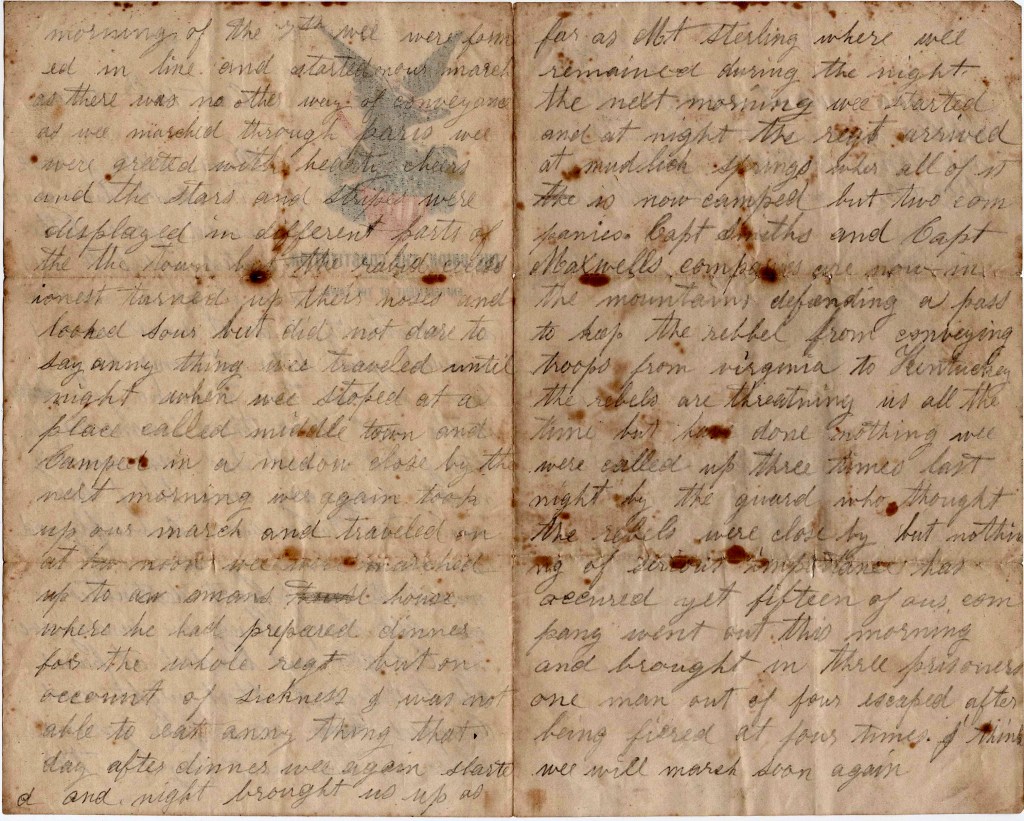 morning of the 7th wee were form
ed in line and started our march
as there was no other way of conveyance
as wee marched through paris wee
were greated with hearty cheers
and the stars and stripes were
displayed in different parts of
the the town but the
ionest turned up their noses and
looked sour but did not dare to
say anny thing wee traveled until
night when wee stoped at a
place called middle town and
Camped in a medow close by the
next morning wee again toop
up our march and traveled on
at noon wee marched
up to a mans house
where he had prepared dinner
for the whole regt but on
account of sickness I was not
able to eat anny thing that
day after dinner wee again starte
d and night brought us up as
far as Mt Sterling where wee
remained during the night
the next morning wee started
and at night the regt arrived
at mudlick springs wher all of it
the is now camped but two com
panies Capt Smiths and Capt
Maxwells companies are now in
the mountains defanding a pass
to keep the rebbel from conveying
troops from virginia to Kentuckey
the rebels are threatning us all the
time but have done nothing wee
were called up three times last
night by the guard who thought
the rebels were close by but nothin
ng of serious importance has
occured yet fifteen of our com
pany went out this morning
and brought in three prisoners
one man out of four escaped after
being fiered at four times I think
wee will march soon again